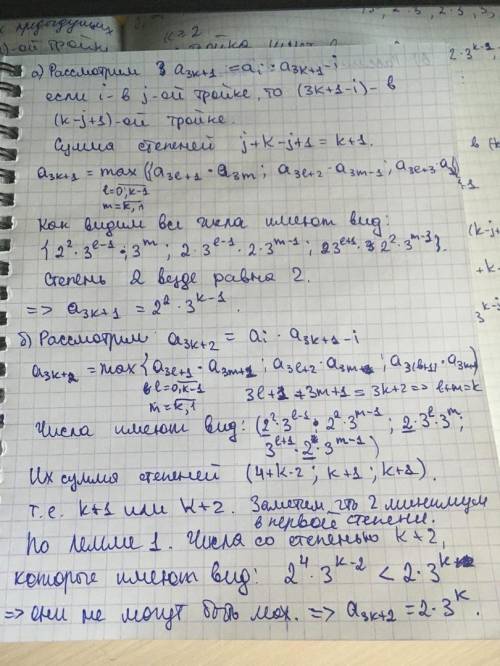 х предыдущих
)-ой тройк
k=2
2·3^{k-1},
а) Рассмотрим a_{3k+1} = a_i · a_{3k+1-i}
если i - в j-ой тройке, то (3k+1-i) - в
(k-j+1)-ой тройке.
Сумма степеней j+k-j+1 = k+1.
a_{3k+1} = max {(a_{3l+1} · a_{3m}; a_{3l+2} · a_{3m-1}; a_{3l+3} · a
l=0,k-1
m=k,1
Как видим все числа имеют вид:
{2^2 · 3^{l-1} · 3^m; 2·3^{l-1} · 2·3^{m-1}; 23^{l+1} · 2^2 · 3^{m-1}}.
Степень 2 везде равна 2.
=> a_{3k+1} = 2^2 · 3^{k-1}.
б) Рассмотрим a_{3k+2} = a_i · a_{3k+1-i}
a_{3k+2} = max {a_{3l+1} · a_{3m+1}; a_{3l+2} · a_{3m}; a_{3(l+1)} ·
l=0,k-1
m=k,1
3l+1+3m+1 = 3k+2 => l+m=k
Числа имеют вид: (2^2·3^{l-1} · 2^2·3^{m-1}; 2·3^l·3^m;
3^{l+1} · 2 · 3^{m-1})
Их сумма степеней (4+k-2; k+1; k+1).
т.е. k+1 или k+2. Заметим, что 2 минимум
в первой степени.
По лемме 1. Числа со степенью k+2,
которые имеют вид: 2^4 · 3^{k-2} < 2·3^k
=> они не могут быть мах. => a_{3k+2} = 2·3^k.